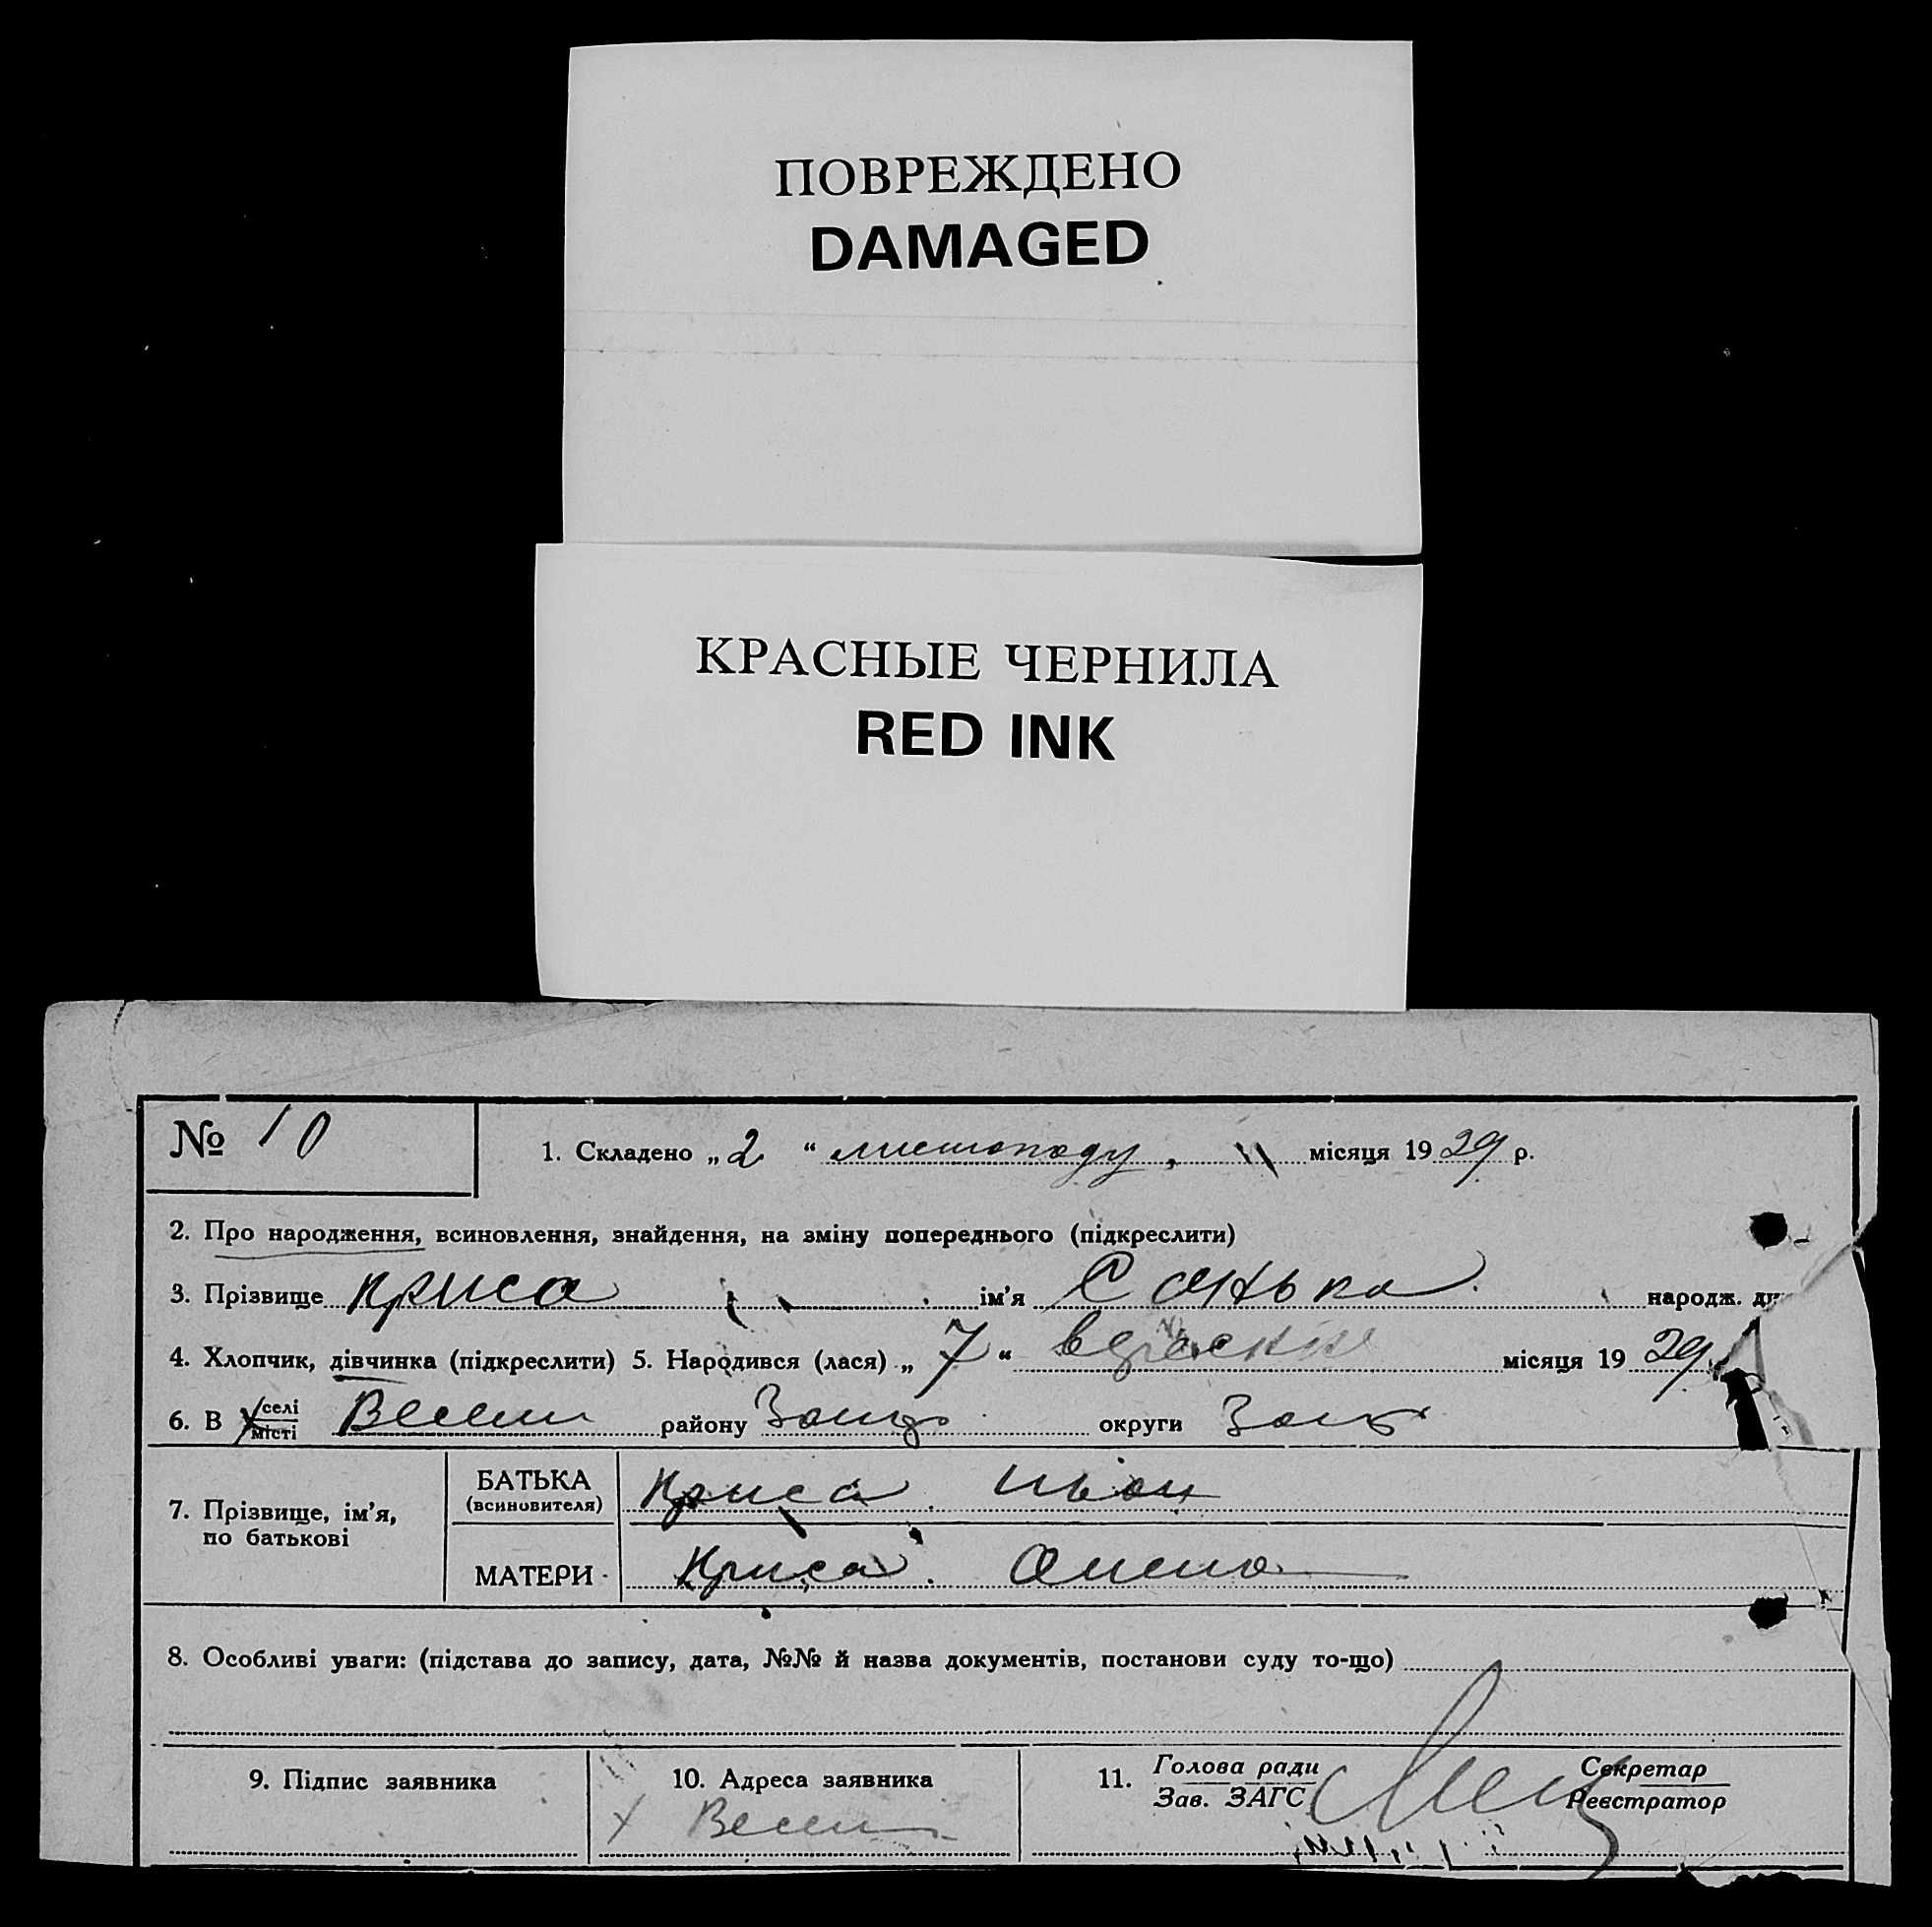 ПОВРЕЖДЕНО
DAMAGED
КРАСНЫЕ ЧЕРНИЛА
RED INK
№ 10
1. Складено „2“ листопаду місяця 1929 р.
2. Про народження, всиновлення, знайдення, на зміну попереднього (підкреслити)
3. Прізвище Криса ім'я Санька народж. ди
4. Хлопчик, дівчинка (підкреслити) 5. Народився (лася) „7“ місяця 1929
6. В селі місті Весели району округи
7. Прізвище, ім'я, по батькові
БАТЬКА (всиновителя) Криса Иван
МАТЕРИ Криса
8. Особливі уваги: (підстава до запису, дата, №№ й назва документів, постанови суду то-що)
9. Підпис заявника
10. Адреса заявника
11. Голова ради Зав. ЗАГС
Секретар Реєстратор
х Весели